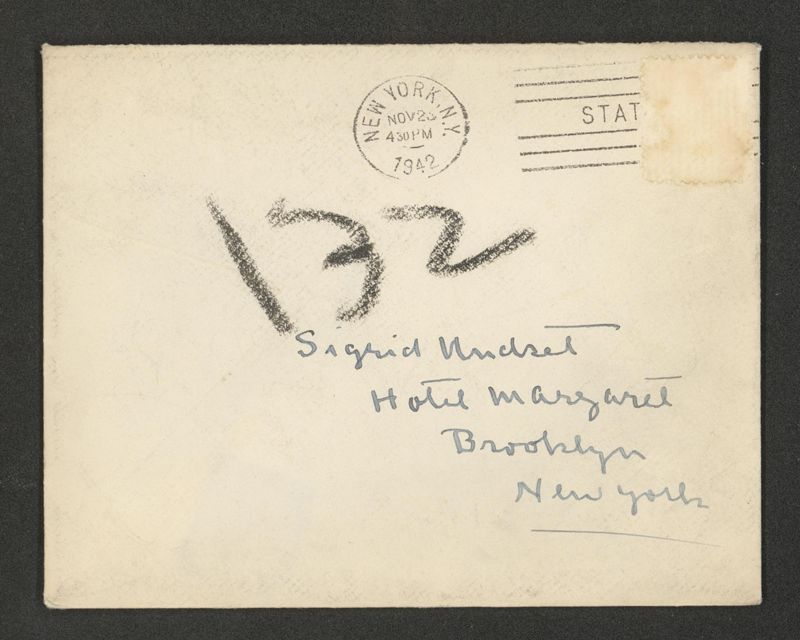 NEW YORK, N.Y.
NOV 23
4 30 PM
1942
STAT
132
Sigrid Undset
Hotel Margaret
Brooklyn
New York